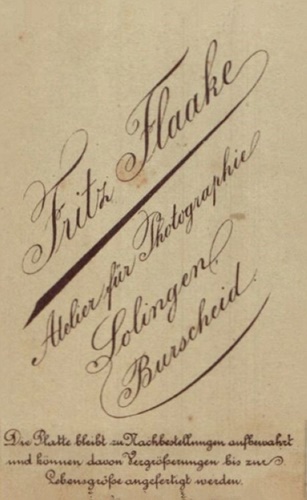 Fritz Flaake
Atelier für Photographie
Solingen.
Burscheid.
Die Platte bleibt zu Nachbestellungen aufbewahrt
und können davon Vergrößerungen bis zur
Lebensgröße angefertigt werden.